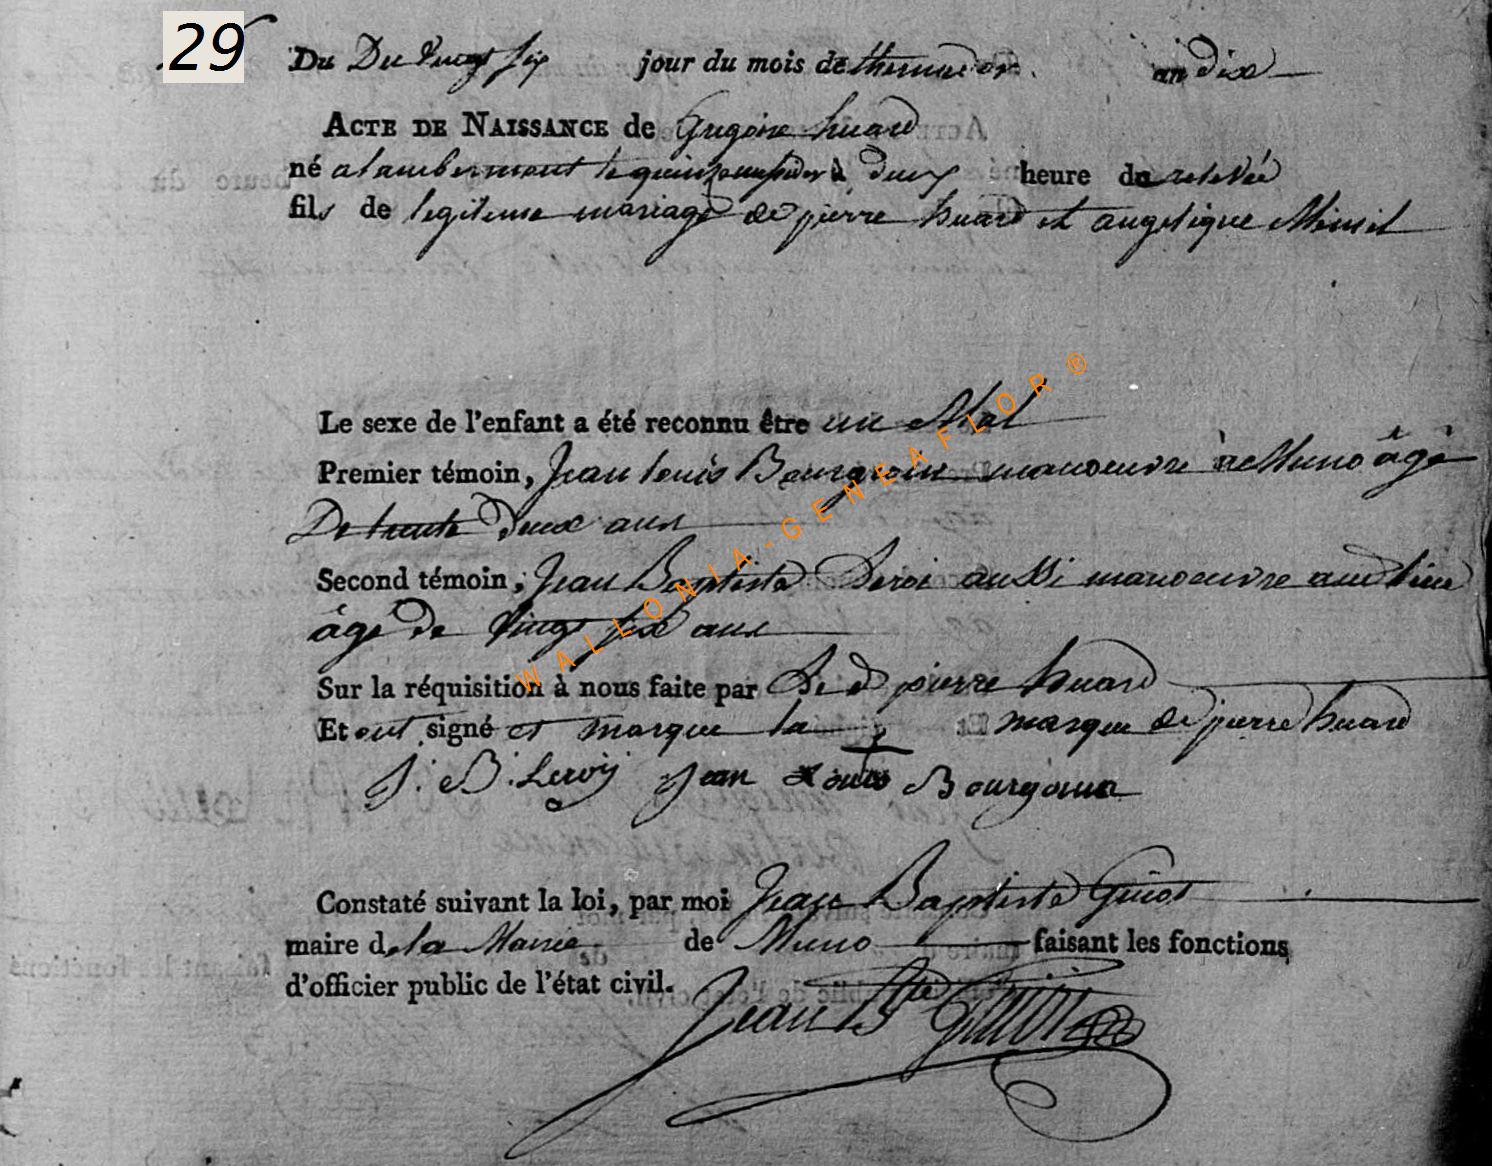 29
Du Du vingt six jour du mois de thermidor an dix
ACTE DE NAISSANCE de Gregoire huard
né a lambermont le quinze à deux heure de relevée
fils de legitime mariage de pierre huard et angelique
Le sexe de l'enfant a été reconnu être un Mal
Premier témoin, Jean louis Bourgouin manoeuvre a Muno âgé
De trente deux ans
Second témoin, Jean Baptiste Leroi aussi manoeuvre au lieu
âgé de vingt six ans
Sur la réquisition à nous faite par Le d pierre huard
Et ont signé et marque la marque de pierre huard
J. B. Leroy Jean Louis Bourgouin
Constaté suivant la loi, par moi Jean Baptiste Guiot
maire de la Mairie de Muno faisant les fonctions
d'officier public de l'état civil.
Jean Bte Guiot
WALLONIA-GENEAFLOR®